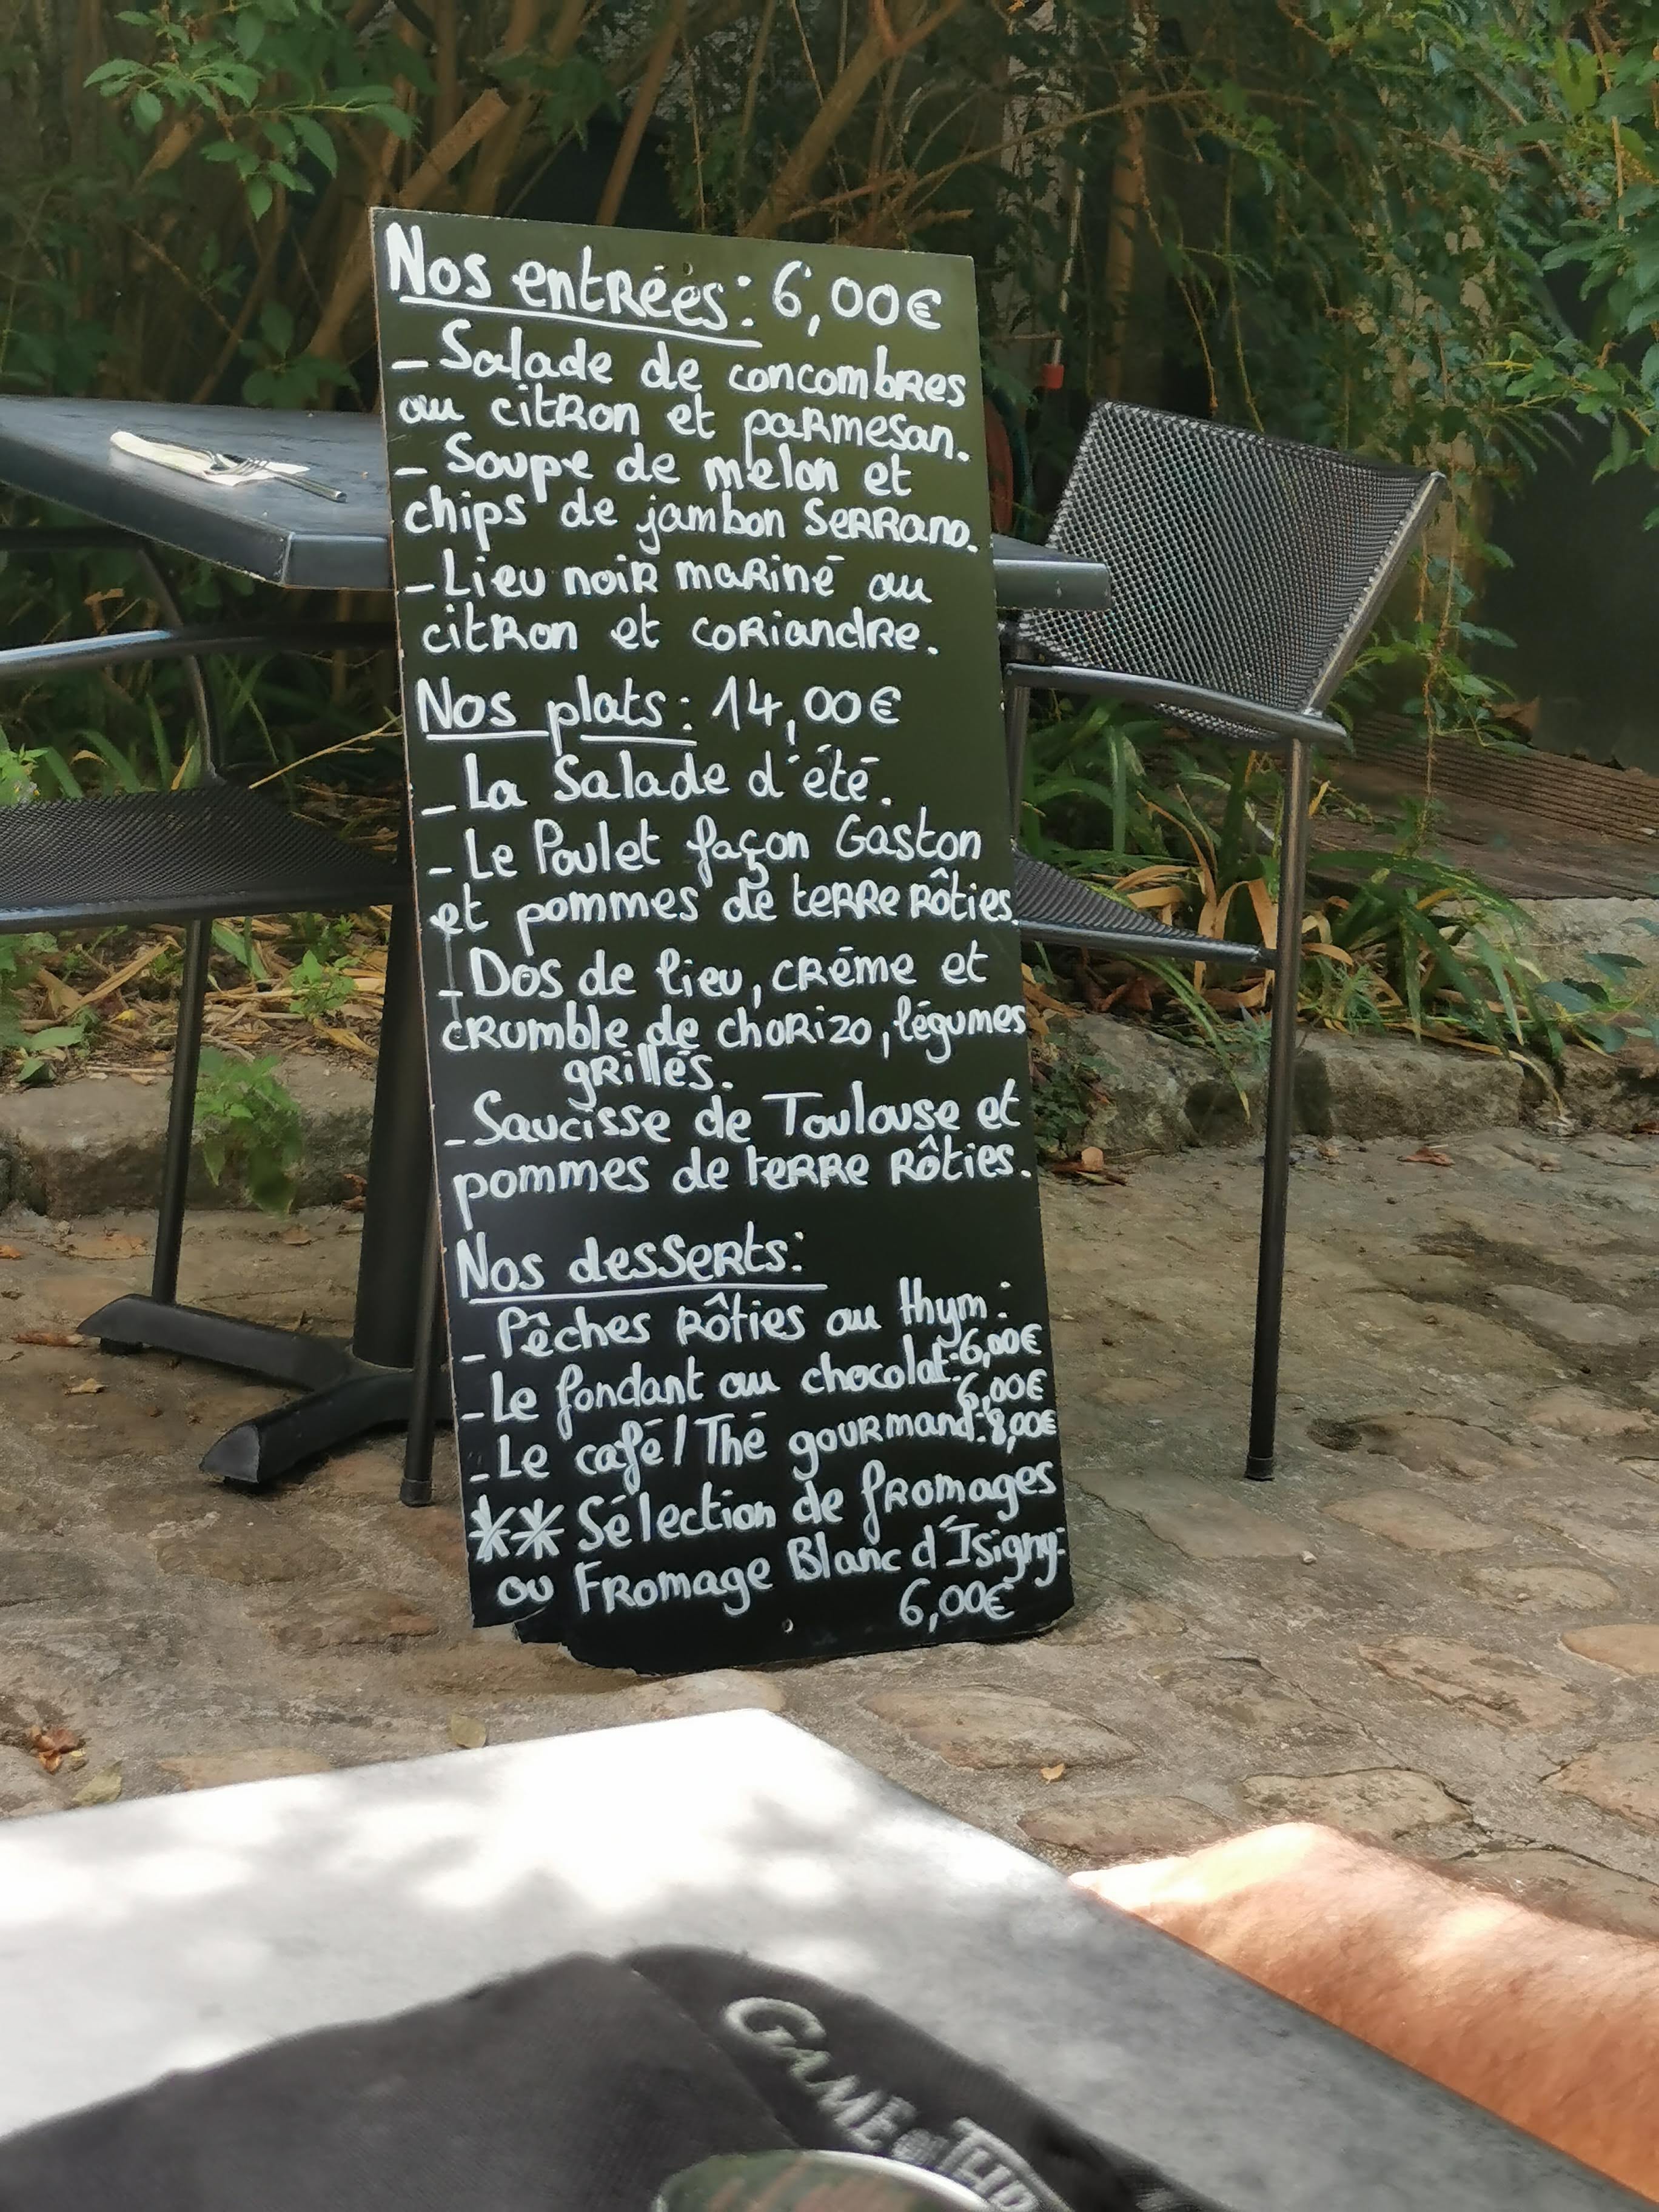 Nos entrées: 6,00€
- Salade de concombres
au citron et parmesan.
- Soupe de melon et
chips de jambon Serrano.
- Lieu noir mariné au
citron et coriandre.
Nos plats: 14,00€
- La Salade d'été.
- Le Poulet façon Gaston
et pommes de terre rôties.
- Dos de lieu, crème et
crumble de chorizo, légumes
grillés.
- Saucisse de Toulouse et
pommes de terre rôties.
Nos desserts:
- Pêches rôties au thym:
6,00€
- Le fondant au chocolat:
6,00€
- Le café/Thé gourmand: 8,00€
** Sélection de fromages
ou Fromage Blanc d'Isigny:
6,00€
GAME OF THR